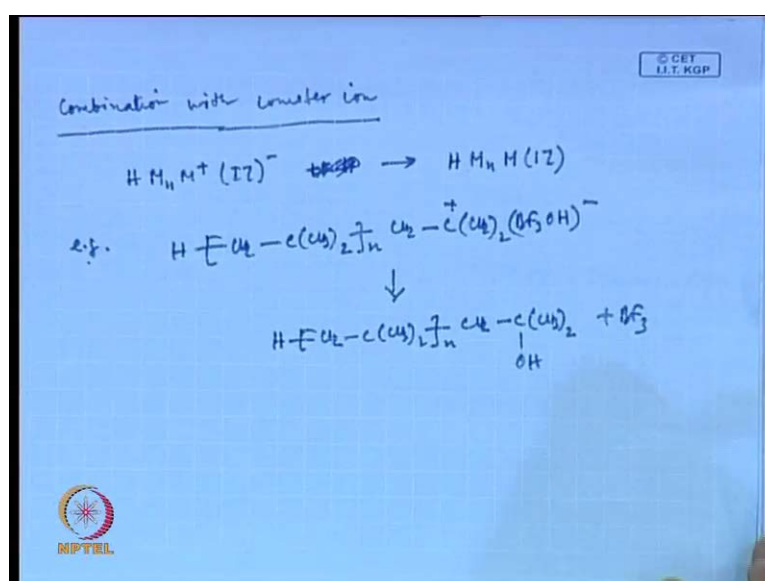 © CET
I.I.T. KGP
Combination with counter ion
H Mₙ M⁺ (IZ)⁻ → H Mₙ M (IZ)
e.g. H –[CH₂ – C(CH₃)₂]ₙ CH₂ – C⁺(CH₃)₂ (BF₃OH)⁻
↓
H –[CH₂ – C(CH₃)₂]ₙ CH₂ – C(CH₃)₂ + BF₃
|
OH
NPTEL